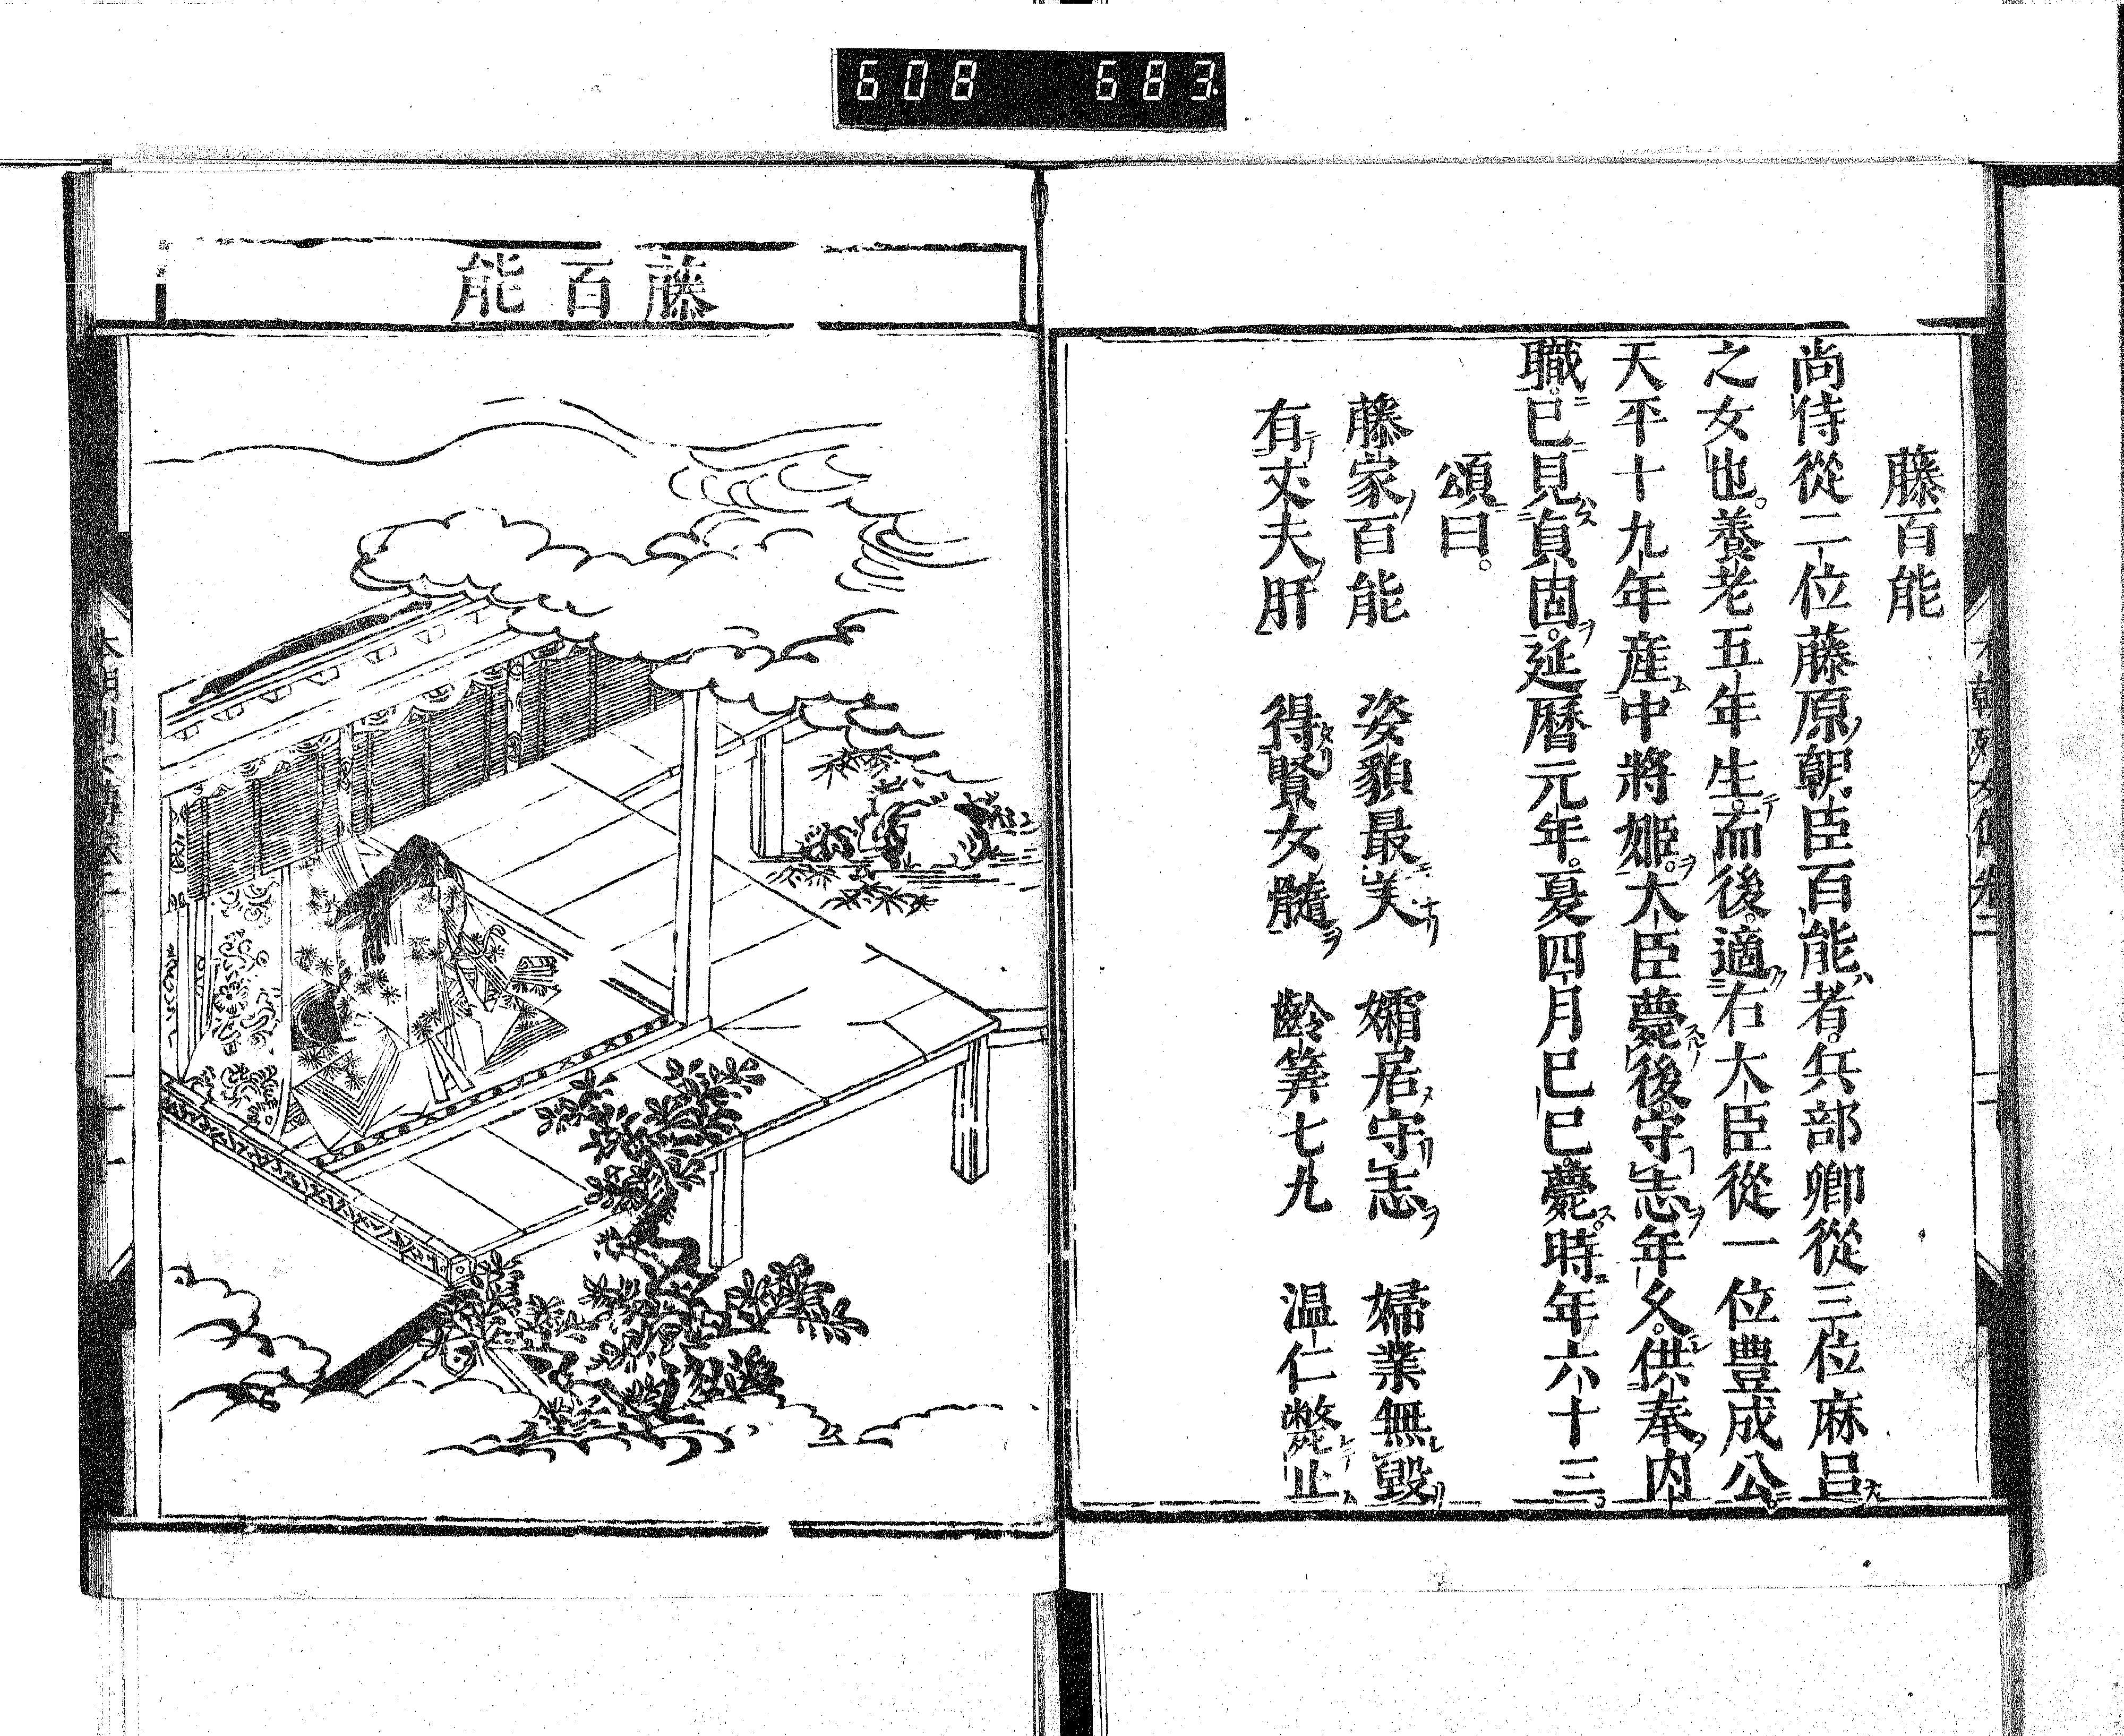 608 683.
藤百能
尚侍從二位藤原朝臣百能者兵部卿從三位麻呂
之女也養老五年生而後適右大臣從一位豊成公
天平十九年産中將姬大臣薨後守志年久供奉内
職已見貞固延曆元年夏四月已巳薨時年六十三
頌曰
藤家百能 姿貌最美 孀居守志 婦業無毀
有丈夫肝 得賢女髓 齡筭七九 温仁斃止
藤百能
本朝列女傳卷二